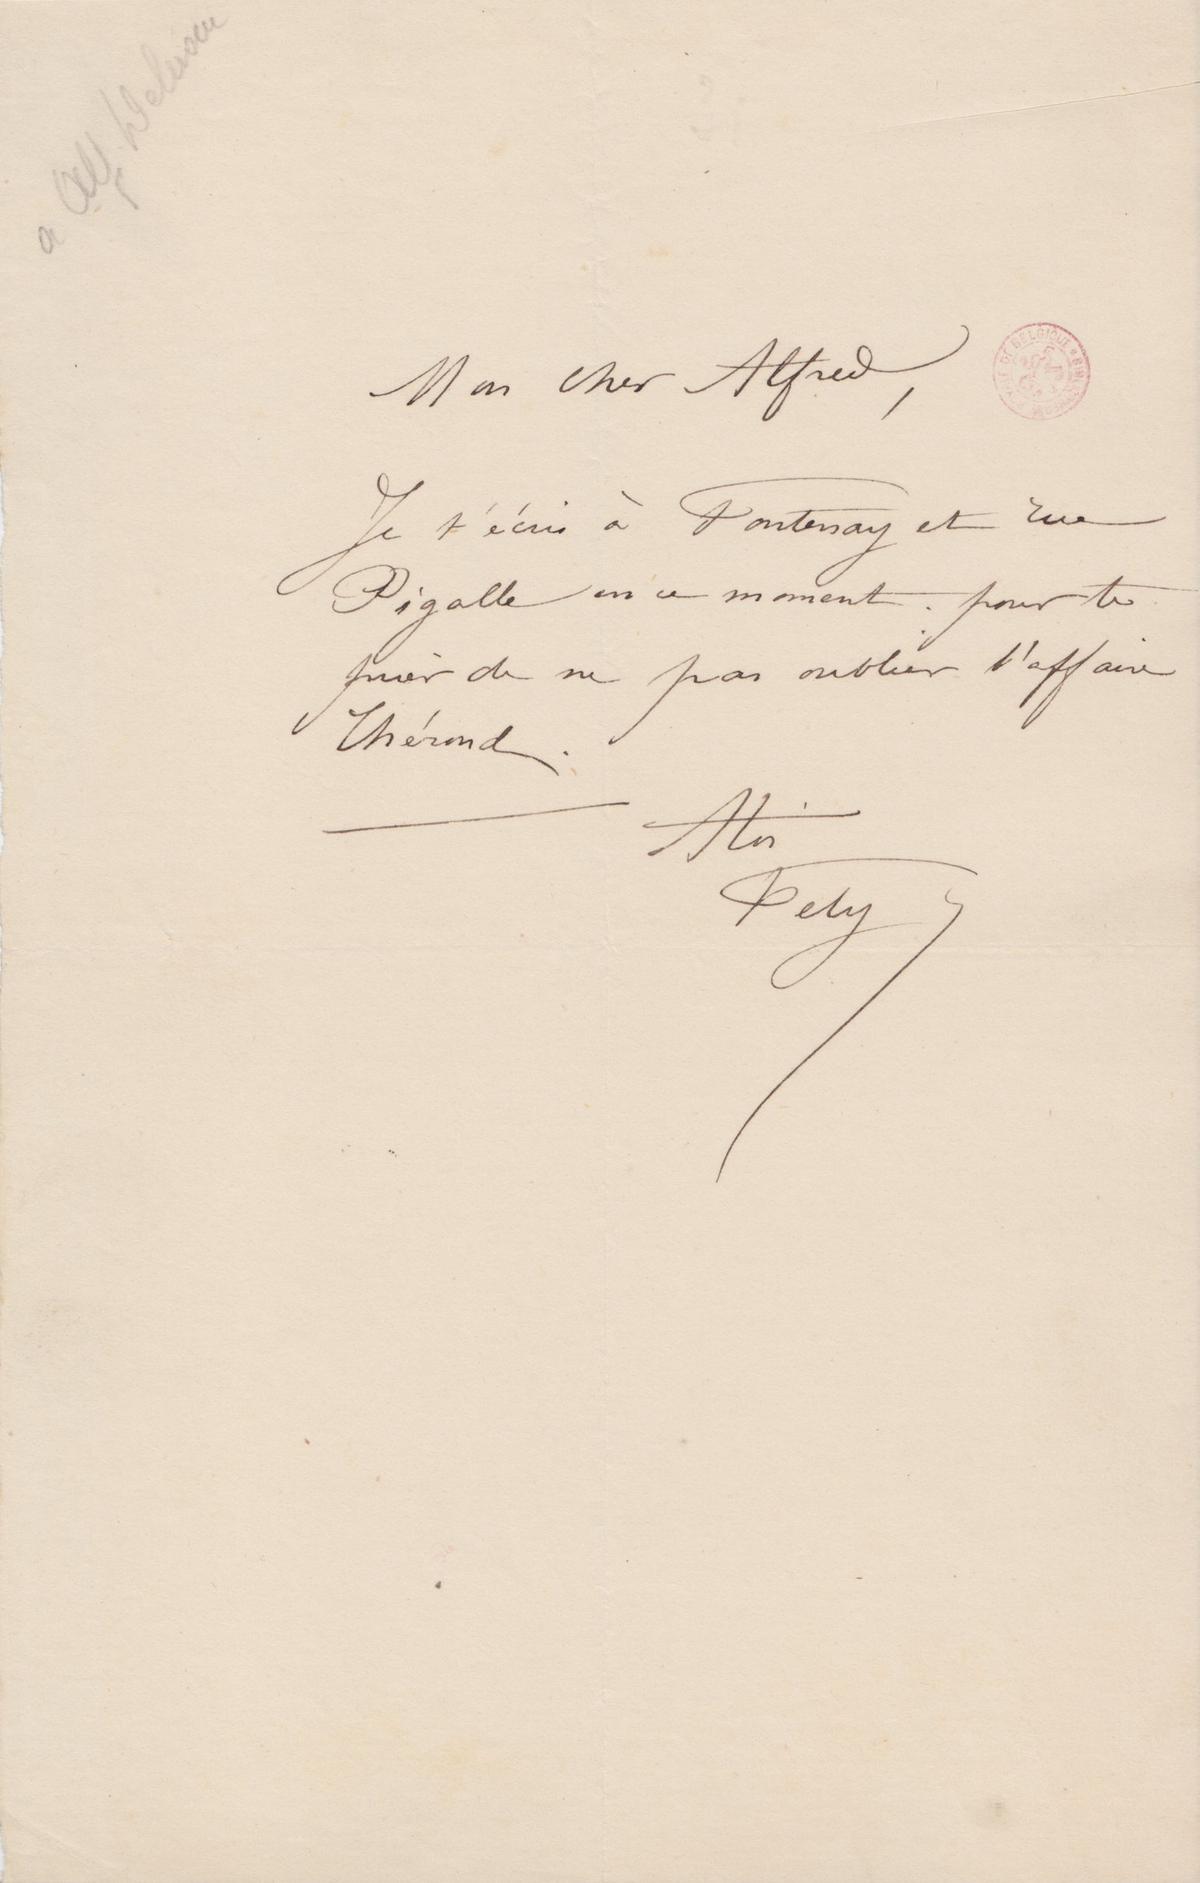 à Alf Delvau
Mon cher Alfred,
Je t'écris à Fontenay et rue
Pigalle en ce moment. pour te
prier de ne pas oublier l'affaire
Thérond.
A toi
Fely
DE BELGIQUE